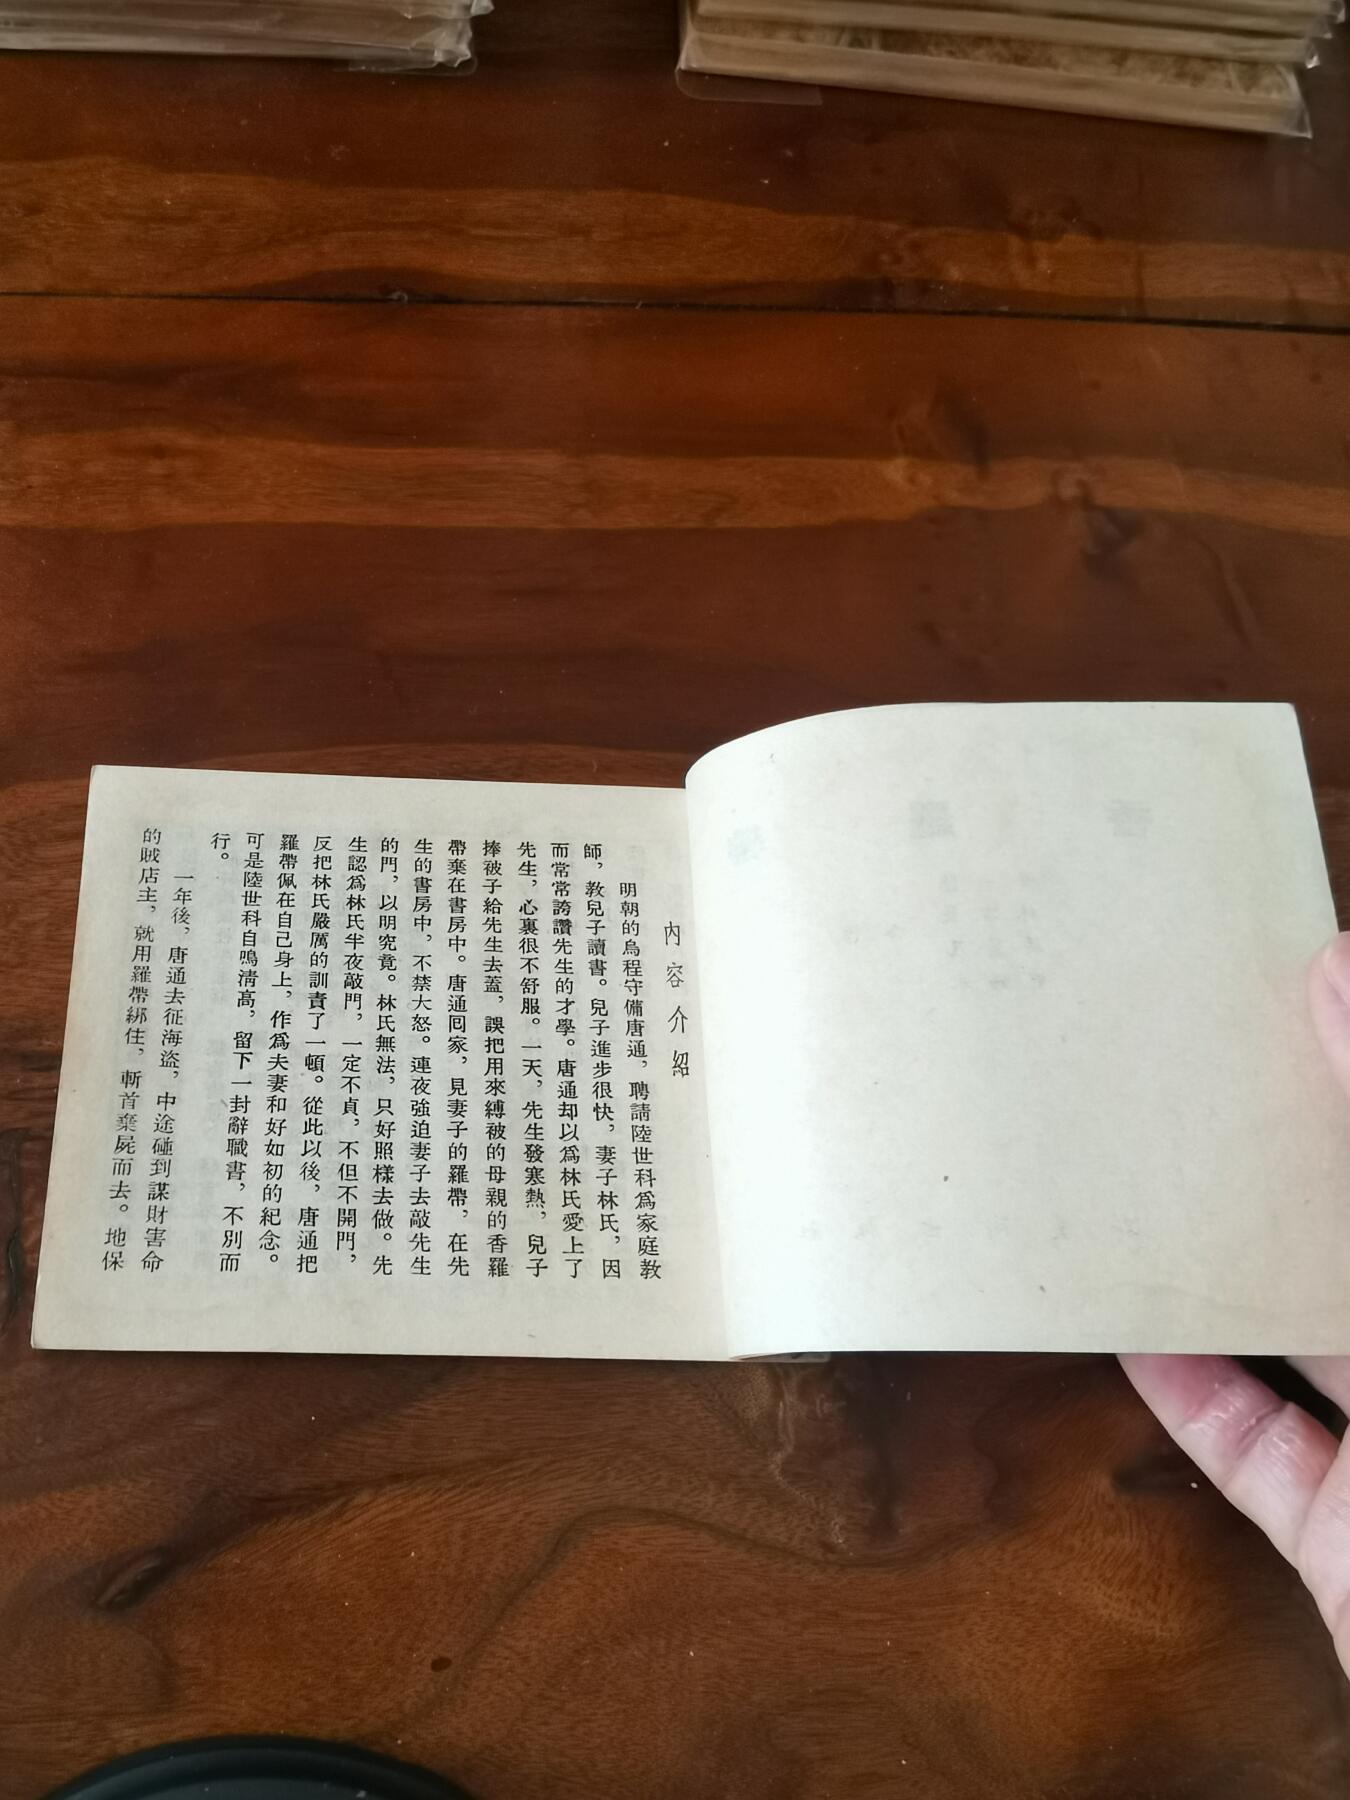 內容介紹
明朝的烏程守備唐通，聘請陸世科爲家庭教
師，教兒子讀書。兒子進步很快，妻子林氏，因
而常常誇讚先生的才學。唐通却以爲林氏愛上了
先生，心裏很不舒服。一天，先生發寒熱，兒子
捧被子給先生去蓋，誤把用來縛被的母親的香羅
帶棄在書房中。唐通囘家，見妻子的羅帶，在先
生的書房中，不禁大怒。連夜強迫妻子去敲先生
的門，以明究竟。林氏無法，只好照樣去做。先
生認爲林氏半夜敲門，一定不貞，不但不開門，
反把林氏嚴厲的訓責了一頓。從此以後，唐通把
羅帶佩在自己身上，作爲夫妻和好如初的紀念。
可是陸世科自鳴淸高，留下一封辭職書，不別而
行。
一年後，唐通去征海盜，中途碰到謀財害命
的賊店主，就用羅帶綁住，斬首棄屍而去。地保